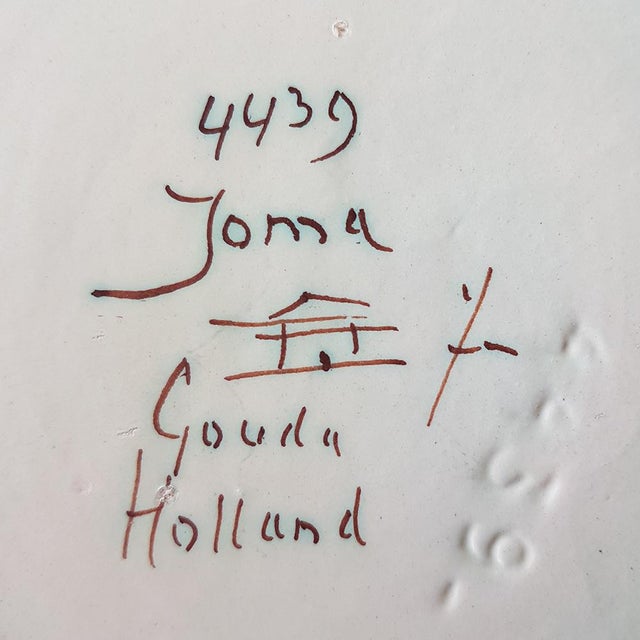 4439
Jonna
Gouda
Holland